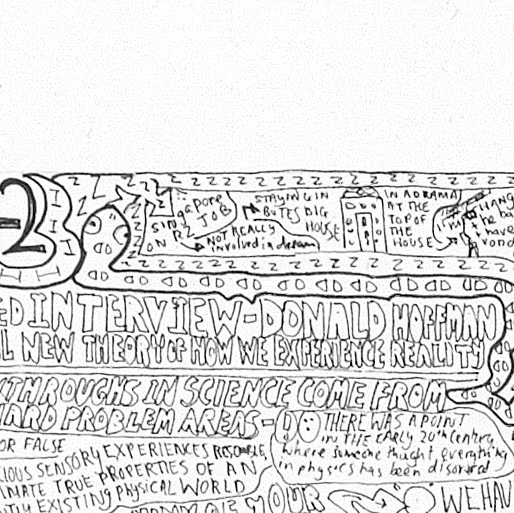 -2
z z z z z z z z z z z z z z z z z
Singapore
JOB
ON RZ
NOT REALLY
involved in dream
STAYING IN
BUTES BIG
HOUSE
IN A DRAMA
AT THE
TOP OF
THE
HOUSE
I'm
HANG
he ba
I have
vond
z z z z z z z z z z z z z z z
ED INTERVIEW-DONALD HOFFMAN
L NEW THEORY OF HOW WE EXPERIENCE REALITY
KTHROUGHS IN SCIENCE COME FROM
HARD PROBLEM AREAS-
THERE WAS A POINT
in THE EARLY 20th Century
where someone thought everything
in physics has been discovered
OR FALSE
CIOUS SENSORY EXPERIENCES RESEMBLE
INATE TRUE PROPERTIES OF AN
NTLY EXISTING PHYSICAL WORLD
YOUR
WE HAV